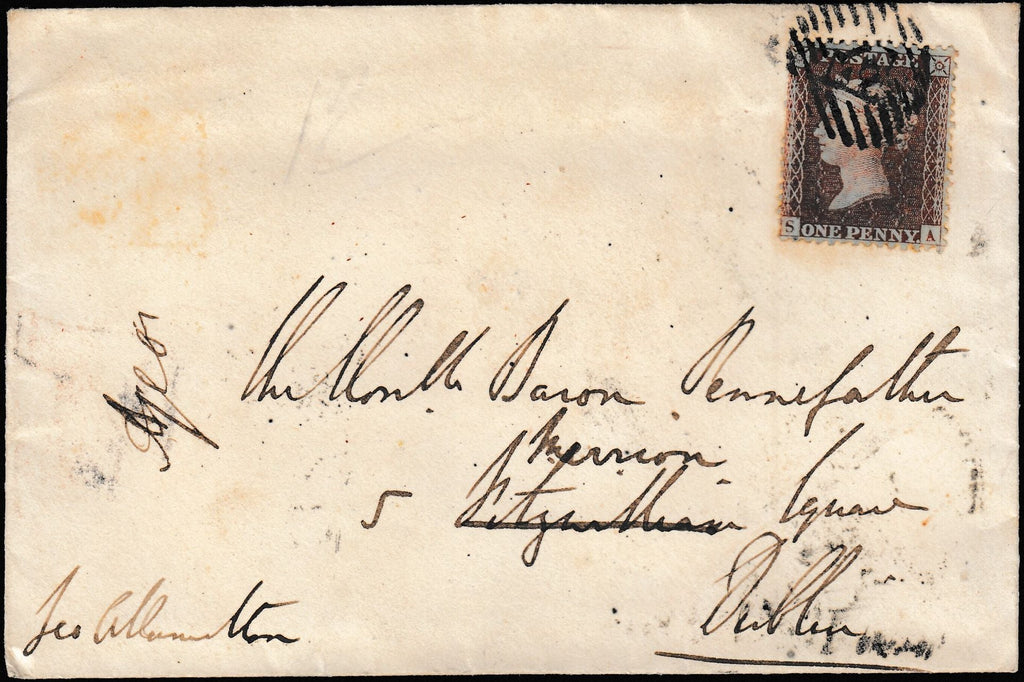 POSTAGE
S ONE PENNY. A
The Honble Baron Pennefather
Merrion
5 Fitzwilliam Square
Dublin
Geo A Hamilton